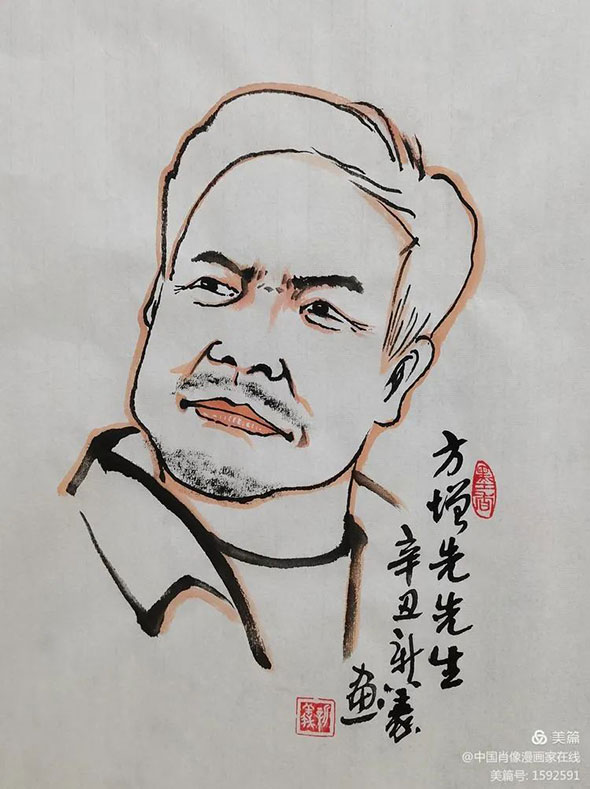 方增先先生
辛丑新义
画
美篇
@中国肖像漫画家在线
美篇号: 1592591